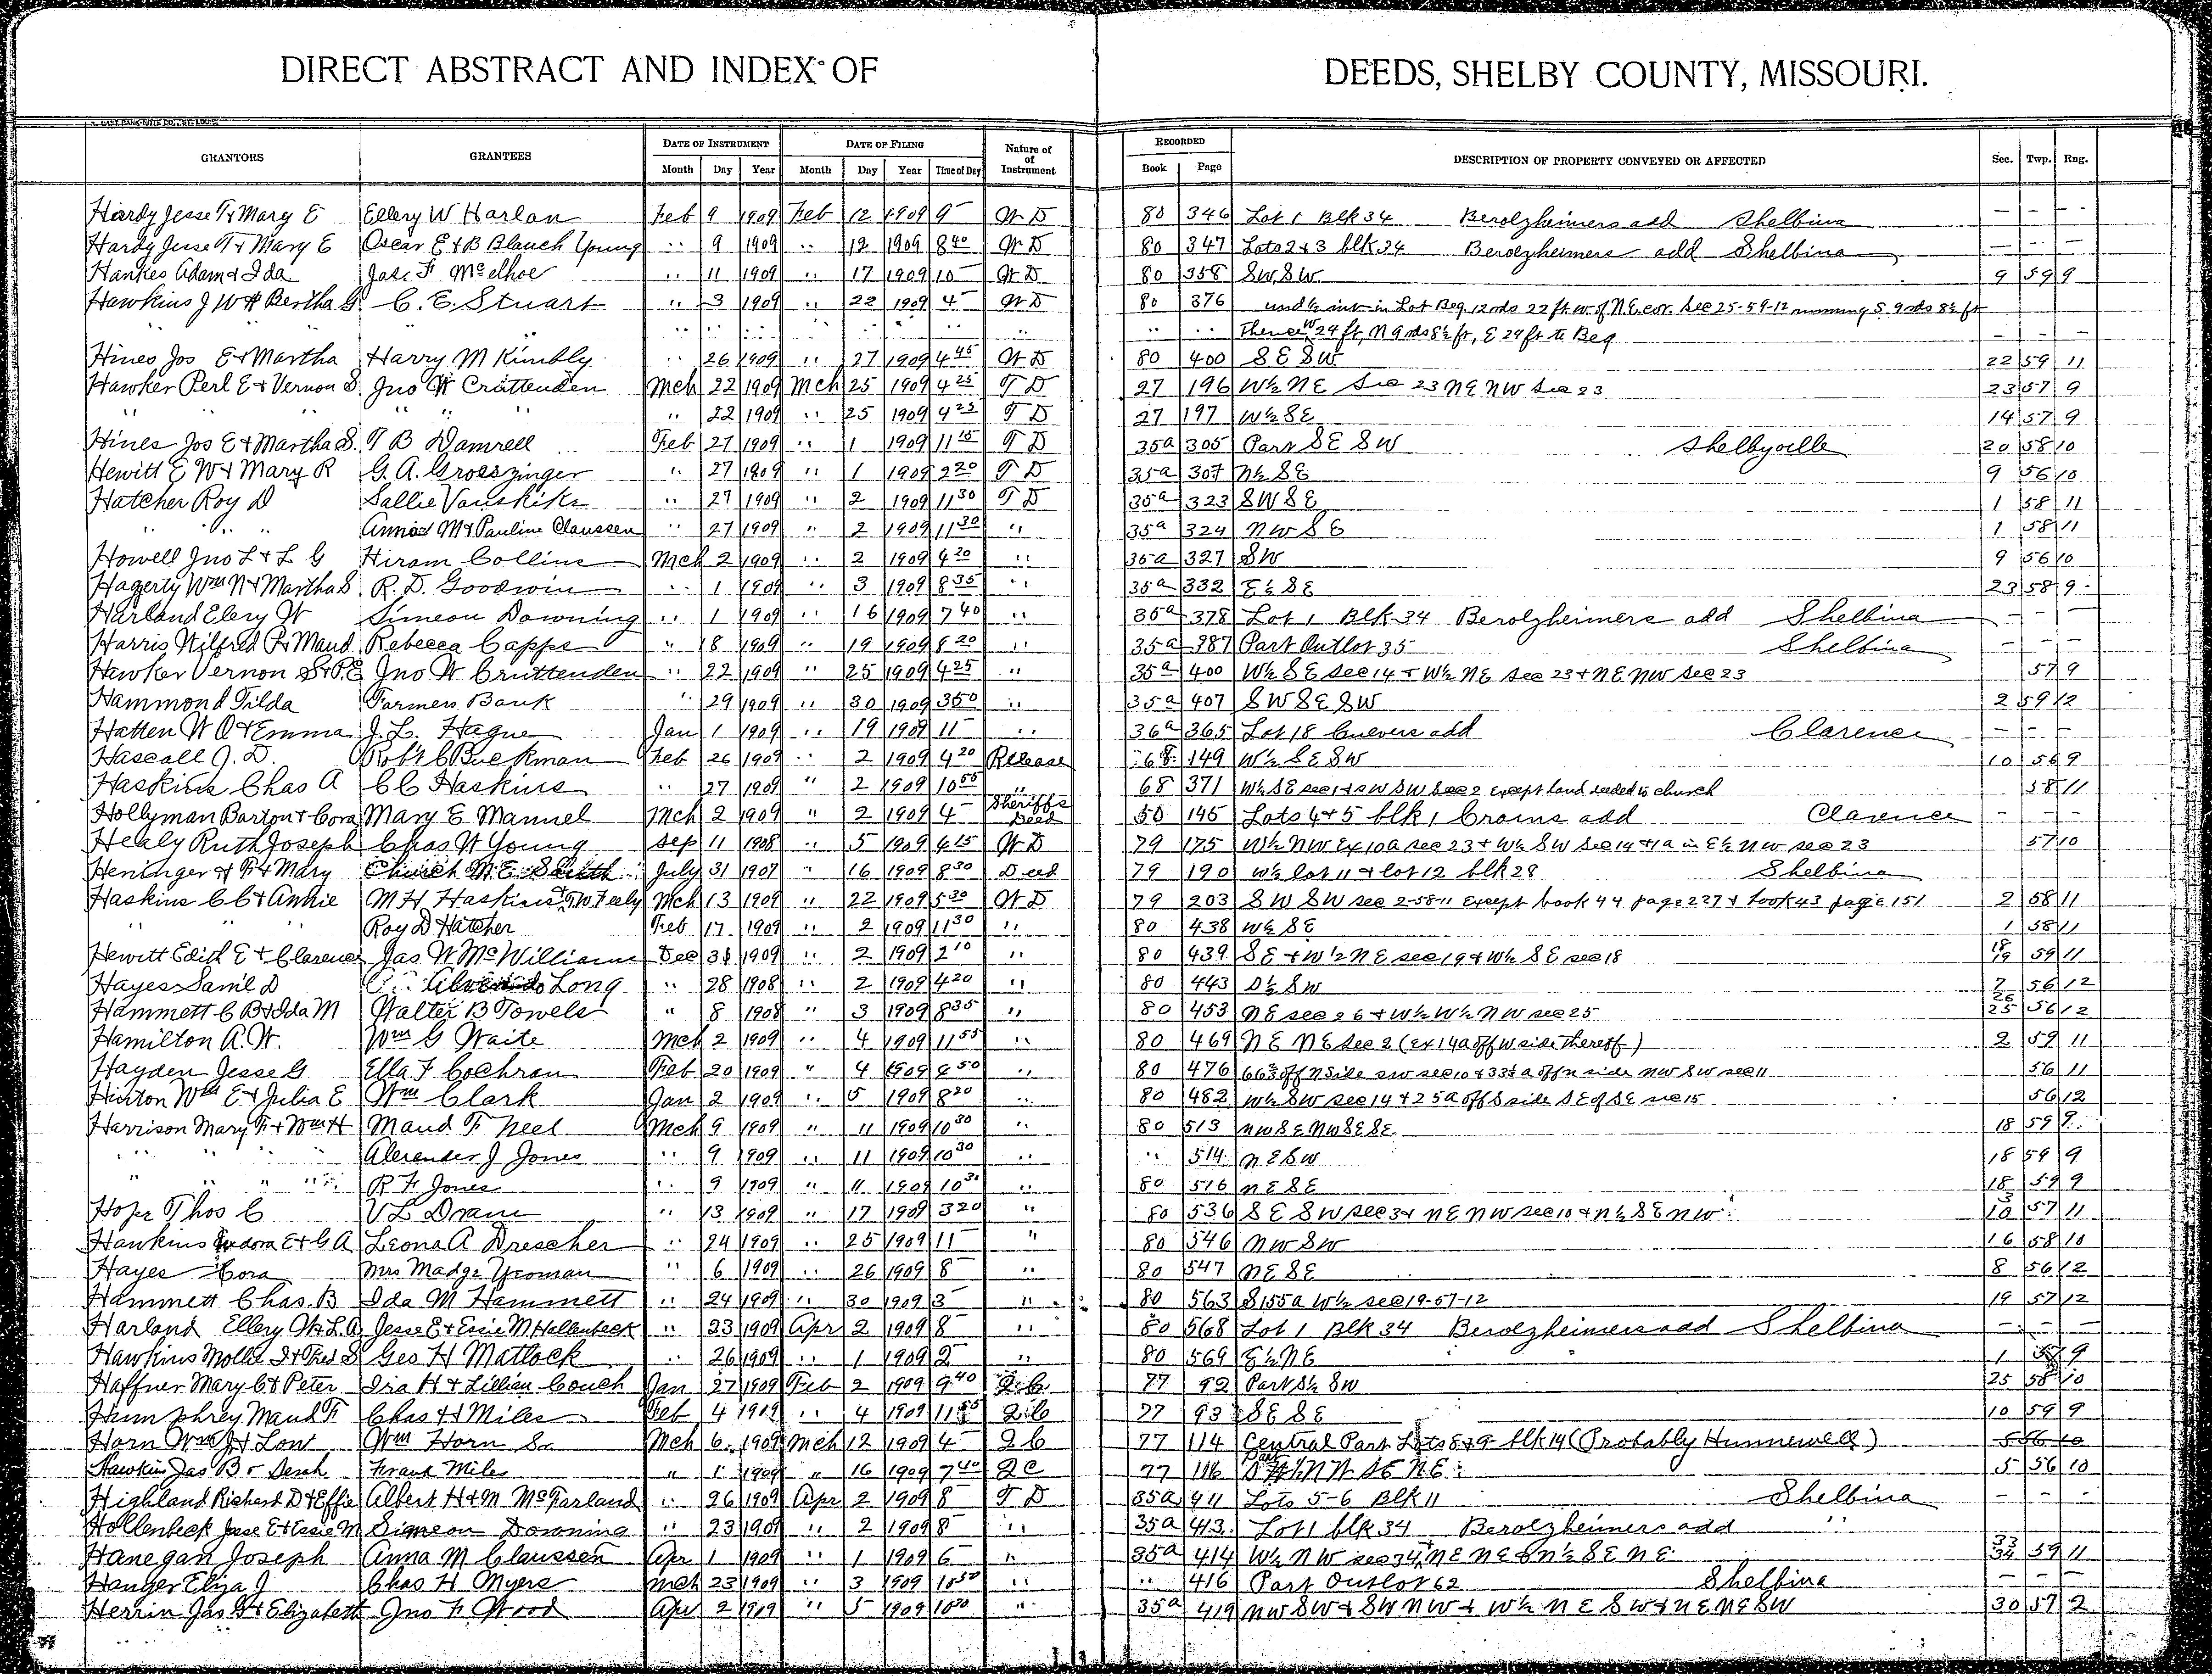 DIRECT ABSTRACT AND INDEX OF DEEDS, SHELBY COUNTY, MISSOURI.
GRANTORS GRANTEES DATE OF INSTRUMENT DATE OF FILING Nature of of Instrument RECORDED DESCRIPTION OF PROPERTY CONVEYED OR AFFECTED Sec. Twp. Rng.
Month Day Year Month Day Year Time of Day Book Page
Hardy Jesse T & Mary E Ellery W Harlan Feb 9 1909 Feb 12 1909 9 W D 80 346 Lot 1 Blk 34 Berolzheimers add Shelbina – – –
Hardy Jesse T & Mary E Oscar E & B Blanch Young " 9 1909 " 12 1909 8 40 W D 80 347 Lots 2 & 3 blk 34 Berolzheimers add Shelbina – – –
Hankes Adam & Ida Jas. F McElhoe " 11 1909 " 17 1909 10 W D 80 358 SW SW 9 59 9
Hawkins J W & Bertha G C. E. Stuart " 3 1909 " 22 1909 4 W D 80 376 und ½ int in Lot Beg. 12 rds 22 ft. w of N.E. cor. Sec 25-59-12 running S. 9 rds 8½ ft
" " " " " " " " " " Thence W 24 ft, N 9 rds 8½ ft, E 24 ft to Beg – –
Hines Jos E & Martha Harry M Kimbly " 26 1909 " 27 1909 4 45 W D 80 400 SE SW 22 59 11
Hawker Perl E & Vernon S Jno W Crattenden Mch 22 1909 Mch 25 1909 4 25 T D 27 196 W½ NE Sec 23 NE NW Sec 23 23 57 9
" " " " " " " 22 1909 " 25 1909 4 25 T D 27 197 W½ SE 14 57 9
Hines Jos E & Martha S. T B Damrell Feb 27 1909 " 1 1909 11 15 T D 35a 305 Part SE SW Shelbyville 20 58 10
Hewitt E W & Mary R G. A. Groeszinger " 27 1909 " 1 1909 2 20 T D 35a 307 N½ SE 9 56 10
Hatcher Roy D Sallie Vanskike " 27 1909 " 2 1909 11 30 T D 35a 323 SW SE 1 58 11
" " " Anna M & Pauline Claussen " 27 1909 " 2 1909 11 30 " 35a 324 NW SE 1 58 11
Howell Jno L & L G Hiram Collins Mch 2 1909 " 2 1909 4 20 " 35a 327 SW 9 56 10
Hagerty Wm N & Martha S R. D. Goodwin " 1 1909 " 3 1909 8 35 " 35a 332 E½ SE 23 58 9
Harland Elery W Simeon Downing " 1 1909 " 16 1909 7 40 " 35a 378 Lot 1 Blk 34 Berolzheimers add Shelbina – – –
Harris Wilfred P & Maud Rebecca Capps " 18 1909 " 19 1909 8 20 " 35a 387 Part Outlot 35 Shelbina – – –
Hawker Vernon S & P.E Jno W Cruttenden " 22 1909 " 25 1909 4 25 " 35a 400 W½ SE sec 14 & W½ NE sec 23 & NE NW sec 23 57 9
Hammond Tilda Farmers Bank " 29 1909 " 30 1909 3 50 " 35a 407 SW SE SW 2 59 12
Hatten W O & Emma J. L. Hague Jan 1 1909 " 19 1909 11 " 36a 365 Lot 18 add Clarence – – –
Hascall J. D. Robt C Buckman Feb 26 1909 " 2 1909 4 20 Release 68 149 W½ SE SW 10 56 9
Haskins Chas A C C Haskins " 27 1909 " 2 1909 10 55 " 68 371 W½ SE sec 1 & SW SW Sec 2 except land deeded to church 58 11
Hollyman Barton & Cora Mary E Manuel Mch 2 1909 " 2 1909 4 Sheriffs Deed 50 145 Lots 4 & 5 blk 1 Crains add Clarence – – –
Healy Ruth Joseph Chas W Young Sep 11 1908 " 5 1909 4 15 W D 79 175 W½ NW Ex 10a sec 23 & W½ SW sec 14 & 1a in E½ NW sec 23 57 10
Heninger & F & Mary Church M.E. South July 31 1907 " 16 1909 8 30 Deed 79 190 W½ lot 11 & lot 12 blk 28 Shelbina
Haskins C C & Annie M H Haskins & T W Feely Mch 13 1909 " 22 1909 5 30 W D 79 203 SW SW sec 2-58-11 Except book 44 page 237 & book 43 page 151 2 58 11
" " Roy D Hatcher Feb 17 1909 " 2 1909 11 30 " 80 438 W½ SE 1 58 11
Hewitt Edith E & Clarence Jas W McWilliams Dec 31 1909 " 2 1909 2 10 " 80 439 SE & W½ NE sec 19 & W½ SE sec 18 18 19 59 11
Hayes Saml D Long " 28 1908 " 2 1909 4 20 " 80 443 S½ SW 7 56 12
Hammett C B & Ida M Walter B Towels " 8 1908 " 3 1909 8 35 " 80 453 NE sec 26 & W½ W½ NW sec 25 26 25 56 12
Hamilton A. W. Wm G Waite Mch 2 1909 " 4 1909 11 55 " 80 469 NE NE Sec 2 (ex 14a off W side thereof) 2 59 11
Hayden Jesse G Ella F Cochran Feb 20 1909 " 4 1909 8 50 " 80 476 66⅔ off N side SW sec 10 & 33⅓ a off N side NW SW sec 11 56 11
Hinton Wm E & Julia E Wm Clark Jan 2 1909 " 5 1909 8 20 " 80 482 W½ SW sec 14 & 25a off S side SE of SE sec 15 56 12
Harrison Mary F & Wm H Maud F Neel Mch 9 1909 " 11 1909 10 30 " 80 513 NW SE NW SE SE 18 59 9
" " " Alexander J Jones " 9 1909 " 11 1909 10 30 " " 514 NE SW 18 59 9
" " " " R F Jones " 9 1909 " 11 1909 10 30 " 80 516 NE SE 18 59 9
Hope Thos C V L Drain " 13 1909 " 17 1909 3 20 " 80 536 SE SW sec 3 & NE NW sec 10 & N½ SE NW 3 10 57 11
Hawkins Eudora E & G A Leona A Drescher " 24 1909 " 25 1909 11 " 80 546 NW SW 16 58 10
Hayes Cora Mrs Madge Yroman " 6 1909 " 26 1909 8 " 80 547 NE SE 8 56 12
Hammett Chas. B Ida M Hammett " 24 1909 " 30 1909 3 " 80 563 S 155a W½ sec 19-57-12 19 57 12
Harland Ellery W & L.A Jesse E & Essie M Hollenbeck " 23 1909 Apr 2 1909 8 " 80 568 Lot 1 Blk 34 Berolzheimers add Shelbina – – –
Hawkins Mollie I & Fred S Geo H Matlock " 26 1909 " 1 1909 2 " 80 569 E½ NE 1 9
Haffner Mary C & Peter Ira H & Lillian Couch Jan 27 1909 Feb 2 1909 9 40 Q.C. 77 92 Part S½ SW 25 58 10
Humphrey Maud F Chas H Miles Feb 4 1909 " 4 1909 11 55 Q C 77 93 SE SE 10 59 9
Horn Wm J & Low Wm Horn Sr Mch 6 1909 Mch 12 1909 4 Q C 77 114 Central Part Lots 8 & 9 blk 14 (Probably Hunnewell) 5 56 10
Hawkins Jas B & Derah Frank Miles " 1 1909 " 16 1909 7 40 Q C 77 116 5 56 10
Highland Richard D & Effie Albert H & M McFarland " 26 1909 Apr 2 1909 8 T D 35a 411 Lots 5-6 Blk 11 Shelbina – – –
Hollenbeck Jesse E & Essie M Simeon Downing " 23 1909 " 2 1909 8 " 35a 413 Lot 1 blk 34 Berolzheimers add "
Hanegan Joseph Anna M Claussen Apr 1 1909 " 1 1909 6 " 35a 414 W½ NW sec 34 & NE NE & N½ SE NE 33 34 59 11
Hanger Eliza J Chas H Myers Mch 23 1909 " 3 1909 10 50 " " 416 Part Outlot 62 Shelbina – – –
Herrin Jas G & Elizabeth Jno F Wood Apr 2 1909 " 5 1909 10 30 " 35a 419 NW SW & SW NW & W½ NE SW & NE NE SW 30 57 2